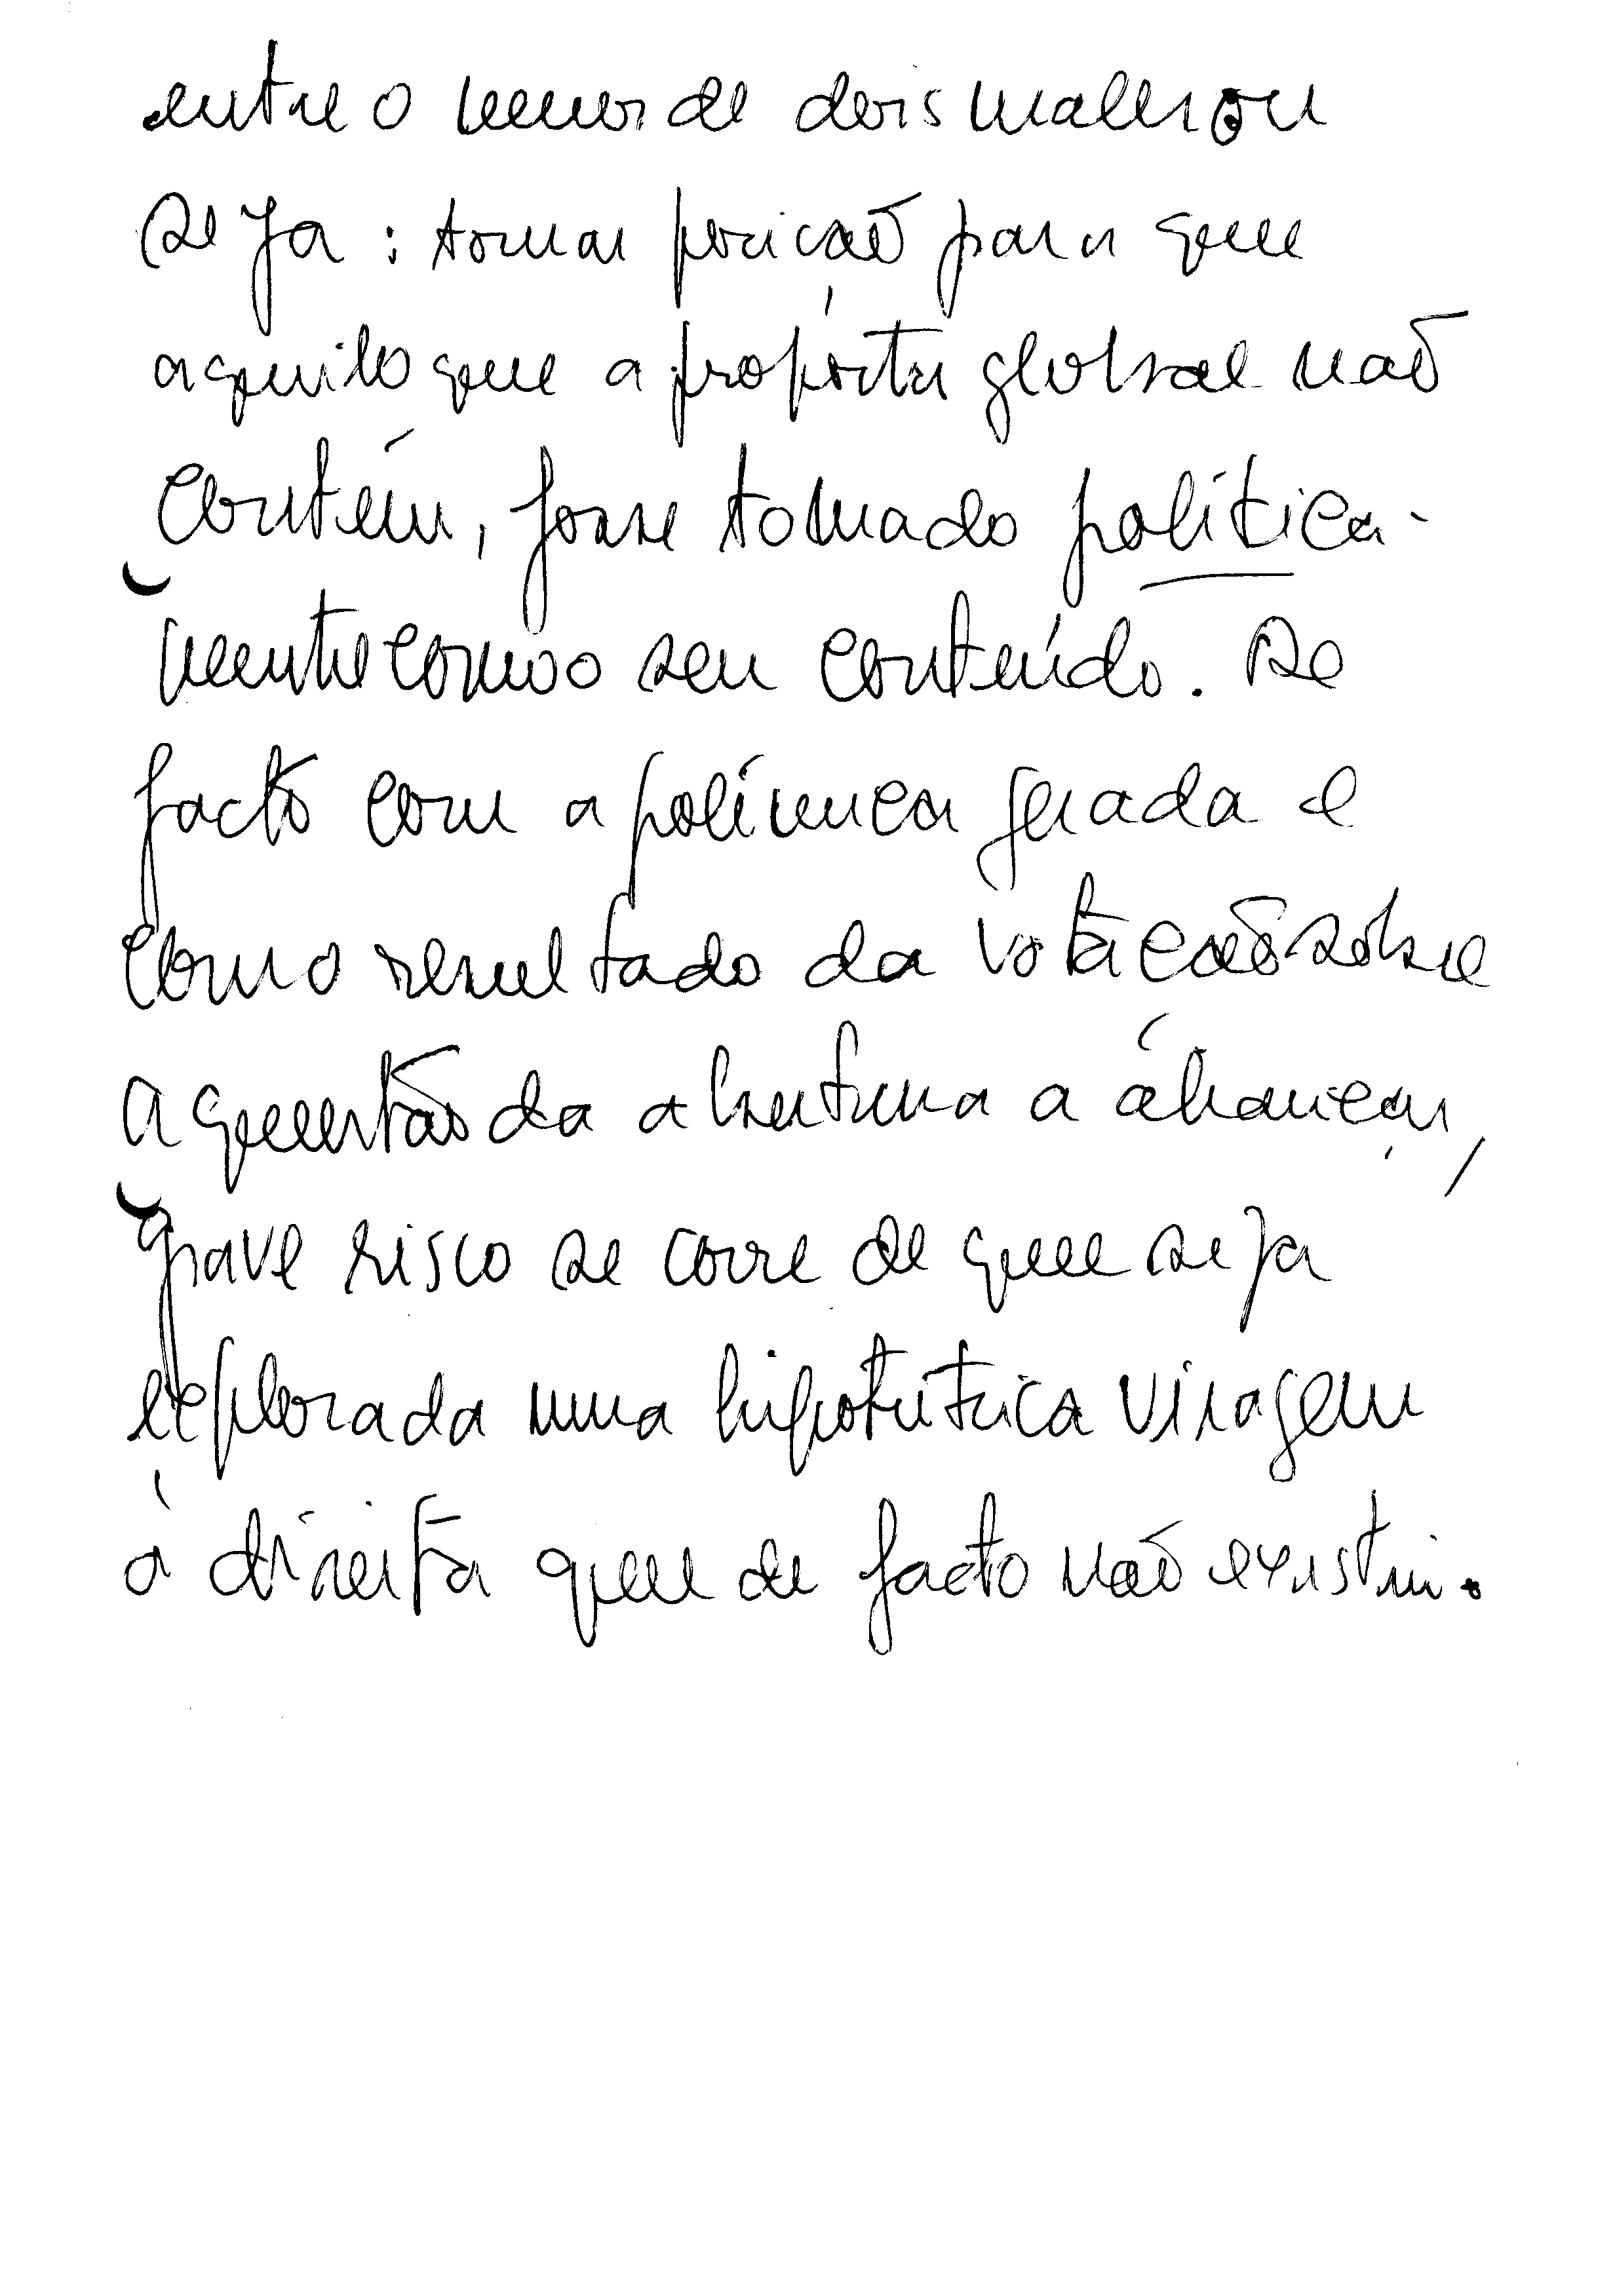 entre o menor de dois males ou
seja: tomar posição para que
aquilo que a propósta global não
contém, fosse tomado política-
mente como seu conteúdo. De
facto com a polémica gerada e
como resultado da votação sobre
a questão da abertura a áliança,
grave risco se corre de que seja
explorada uma hipotética viragem
à direita que de facto não existiu.